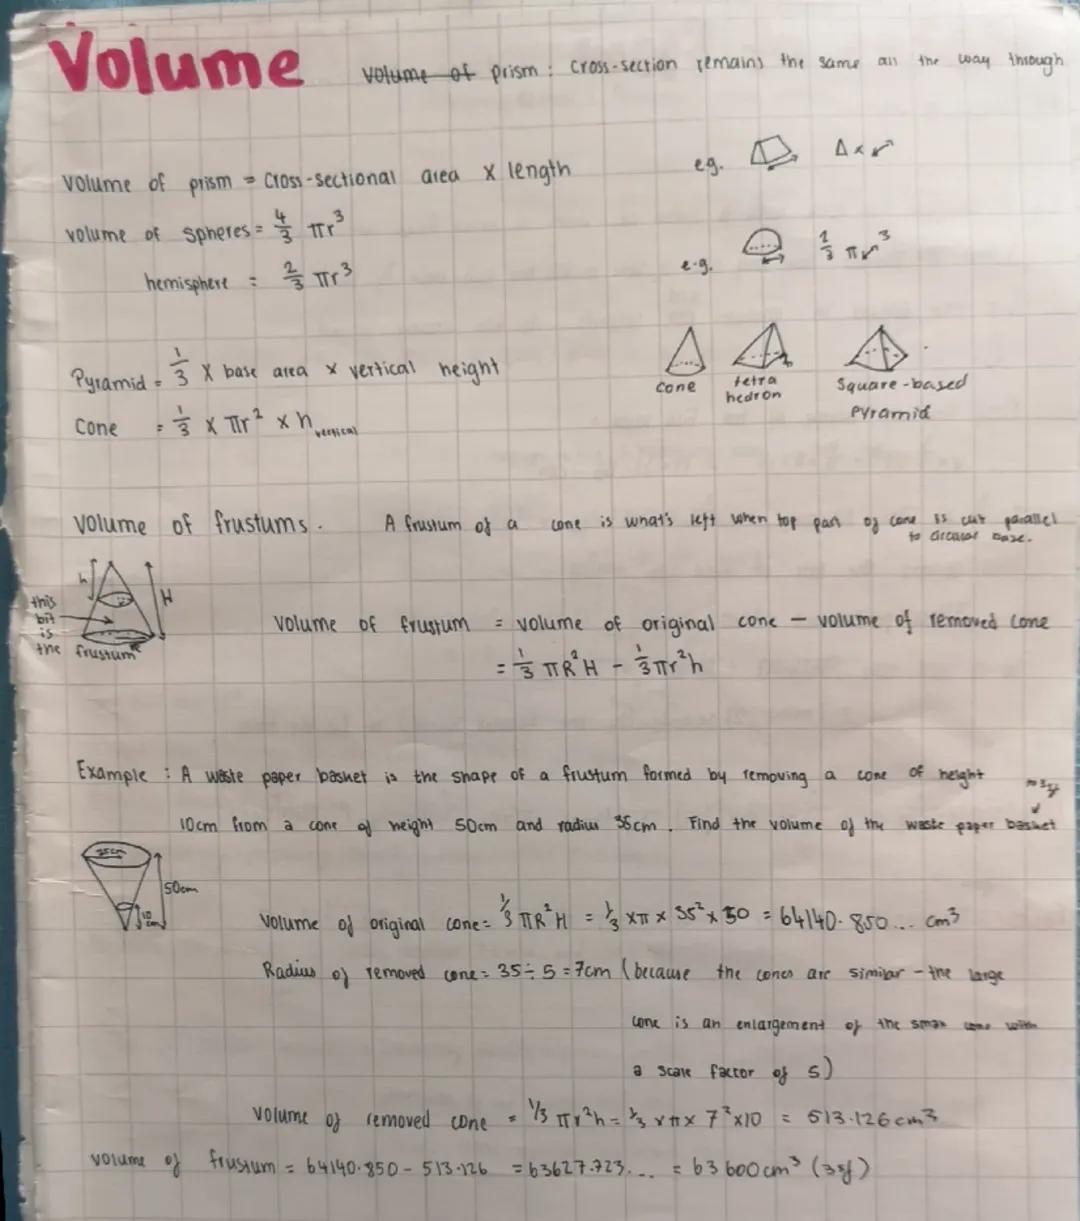 Volume
Volume of prism : cross-section remains the same all the way through
Volume of prism = cross-sectional area x length
e.g. Δ x r
volume of spheres = 4/3 πr³
hemisphere = 2/3 πr³
e.g. 2/3 πr³
Pyramid = 1/3 x base area x vertical height
cone
tetra
hedron
Square-based
Pyramid
Cone = 1/3 x πr² x h vertical
Volume of frustums. A frustum of a cone is what's left when top part of cone is cut parallel
to circular base.
h
H
this
bit
is
the frustum
Volume of frustum = volume of original cone - volume of removed cone
= 1/3 πR²H - 1/3 πr²h
Example : A waste paper basket is the shape of a frustum formed by removing a cone of height
10cm from a cone of height 50cm and radius 35cm. Find the volume of the waste paper basket
to 3sf
35cm
50cm
10
cm
Volume of original cone = 1/3 πR²H = 1/3 xπ x 35² x 50 = 64140.850... cm³
Radius of removed cone = 35÷5 = 7cm (because the cones are similar - the large
cone is an enlargement of the small cone with
a scale factor of 5)
Volume of removed cone = 1/3 πr²h = 1/3 xπx 7² x10 = 513.126cm³
volume of frustum = 64140.850 - 513.126 = 63627.723... = 63600cm³ (3sf)